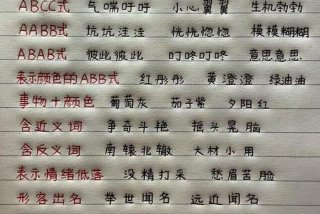 ABCC式 气喘吁吁 小心翼翼 生机勃勃
AABB式 坑坑洼洼 恍恍惚惚 模模糊糊
ABAB式 彼此彼此 叮咚叮咚 意思意思
表示颜色的ABB式 红彤彤 黄澄澄 绿油油
事物+颜色 葡萄灰 茄子紫 夕阳红
含近义词 争奇斗艳 摇头晃脑
含反义词 南辕北辙 大材小用
表示情绪低落 没精打采 愁眉苦脸
形容出名 举世闻名 远近闻名